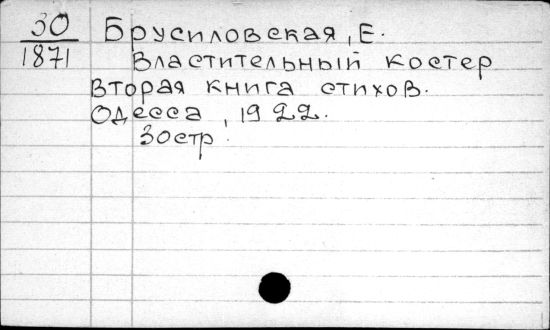 30 Брусиловская, Е.
1871 Властительный костер
Вторая книга стихов.
Одесса, 1922.
30стр.